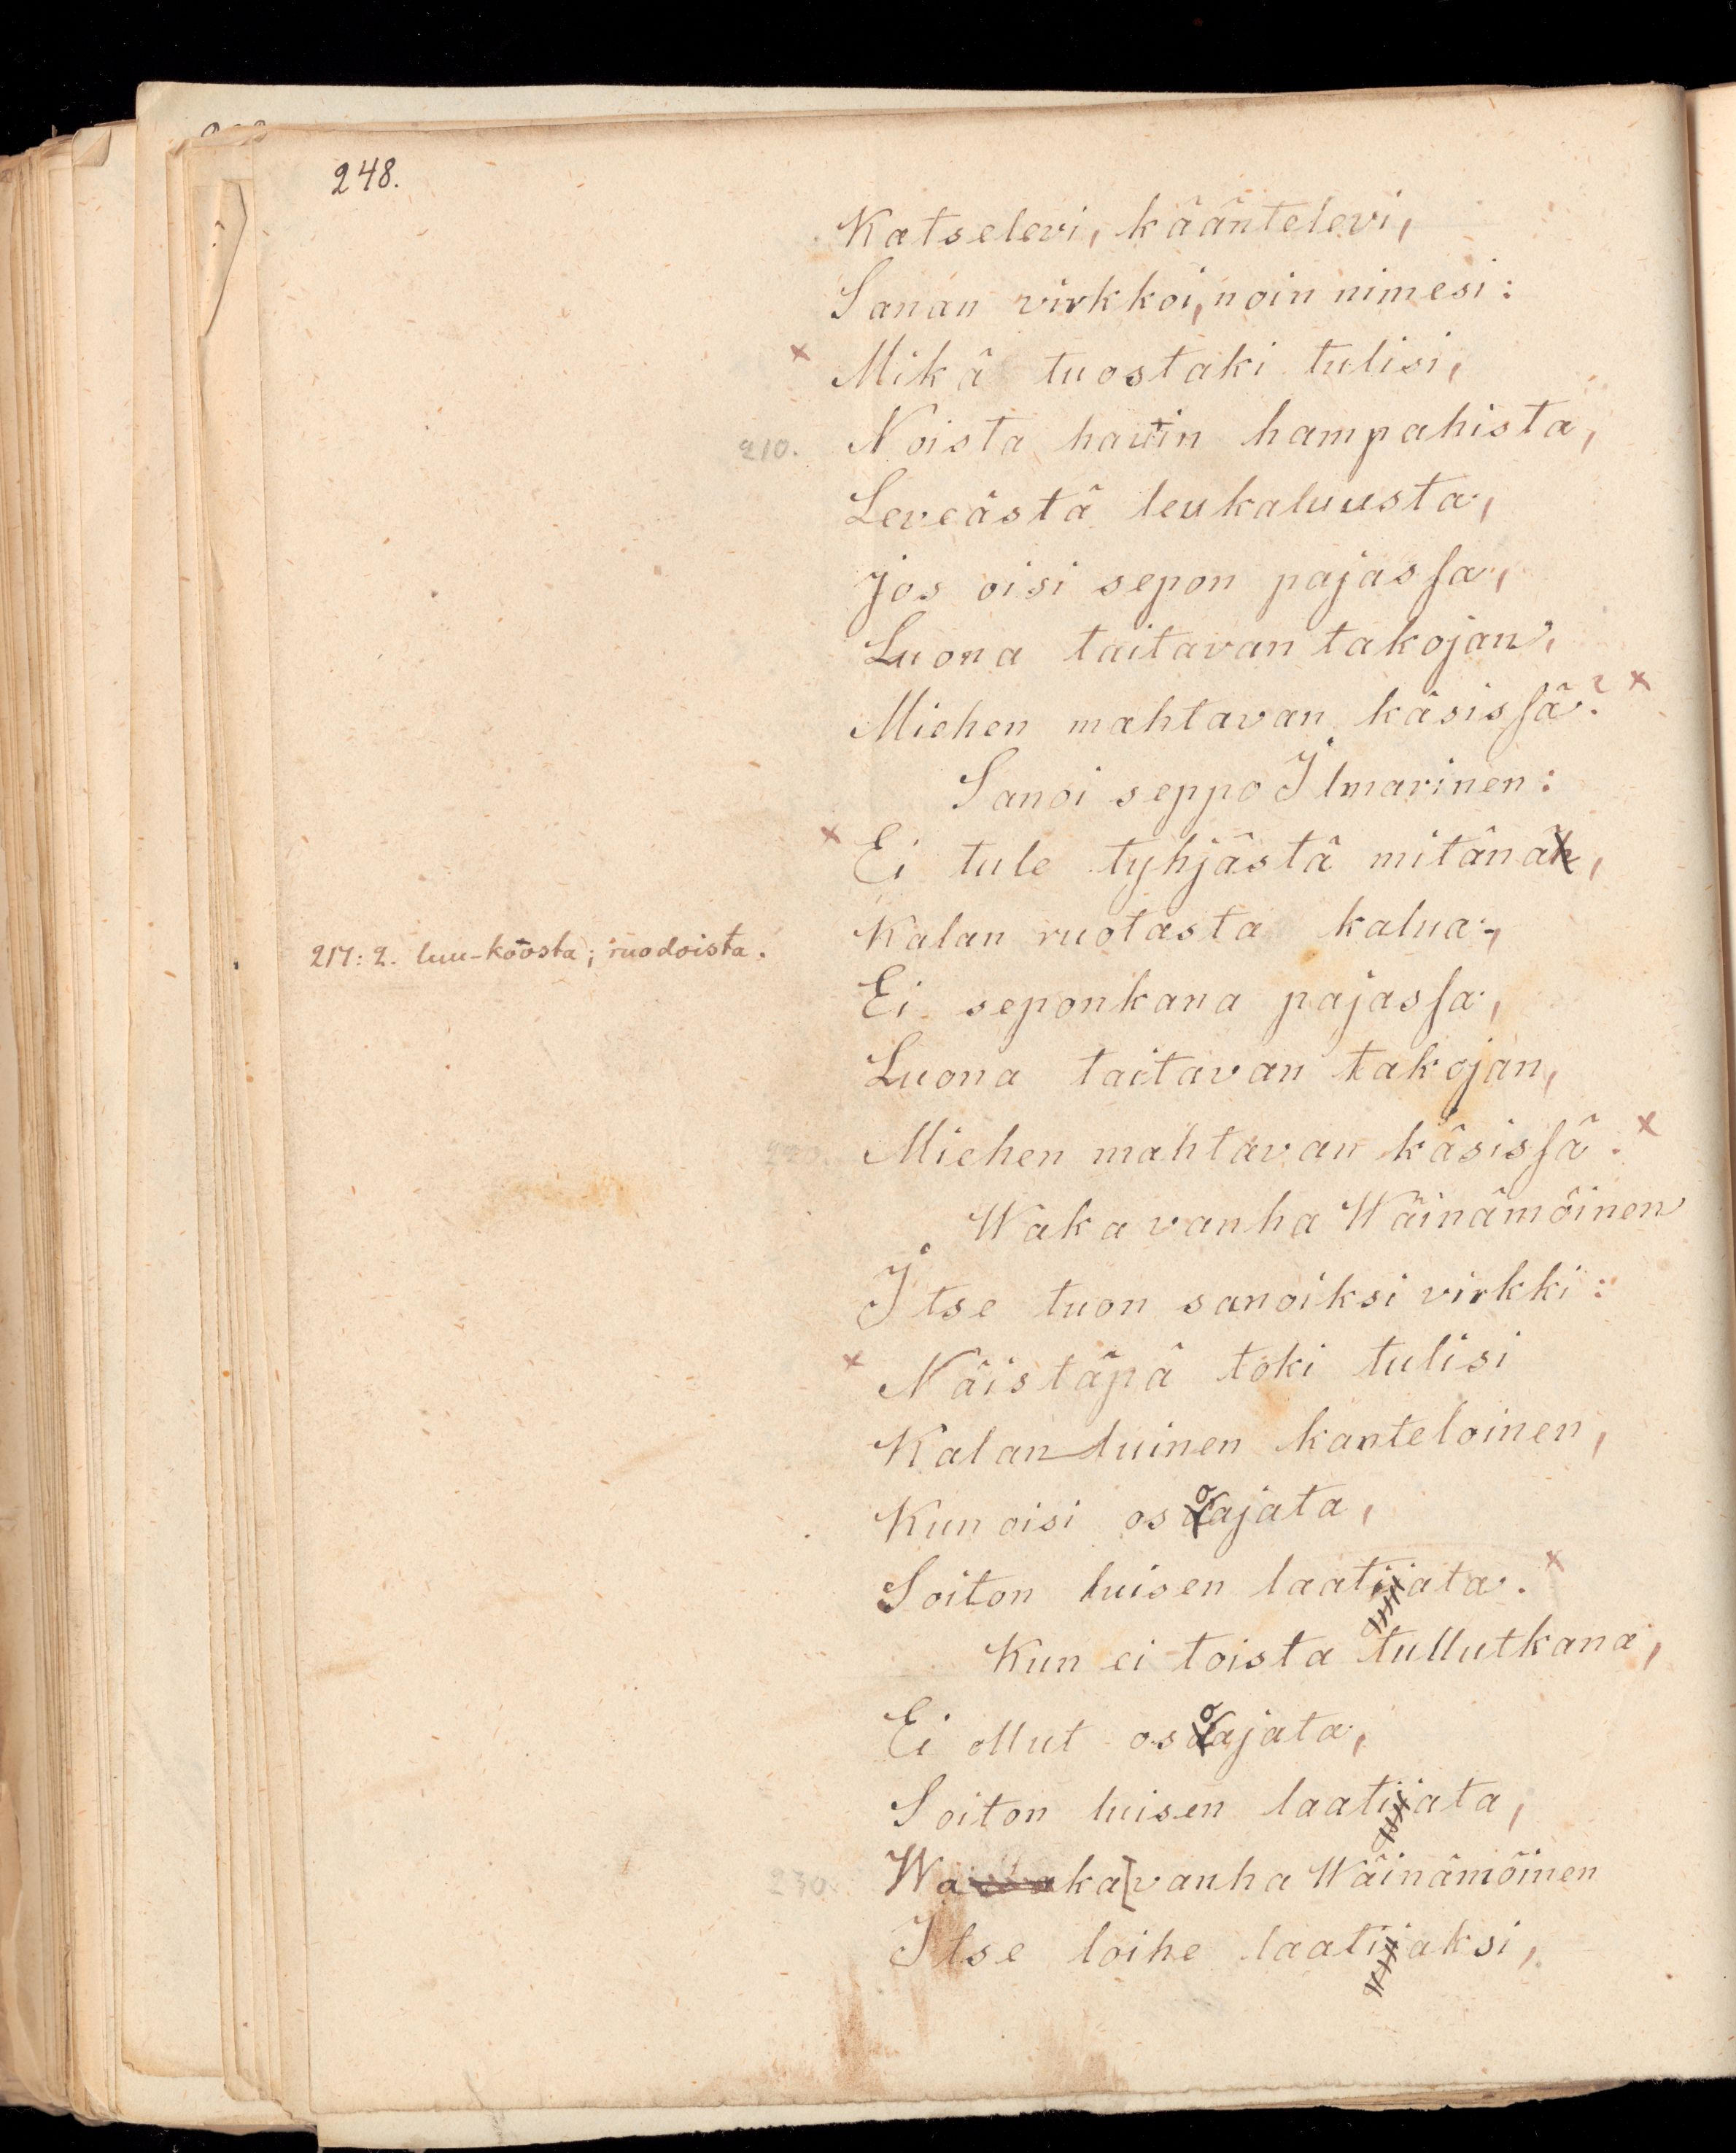 248.
Katselevi, kääntelevi,
Sanan virkkoi, noin nimesi:
× Mikä tuostaki tulisi,
210. Noista hauin hampahista,
Leveästä leukaluusta,
Jos oisi sepon pajassa,
Luona taitavan takojan,
Miehen mahtavan käsissä? ×
Sanoi seppo Ilmarinen:
× Ei tule tyhjästä mitänä,
217: 2. luu-koosta; ruodoista.
Kalan ruotasta kalua,
Ei seponkana pajassa,
Luona taitavan takojan,
220. Miehen mahtavan käsissä. ×
Waka vanha Wäinämöinen
Itse tuon sanoiksi virkki:
× Näistäpä toki tulisi
Kalanluinen kanteloinen,
Kun oisi osoajata,
Soiton luisen laatijata. ×
Kun ei toista tullutkana,
Ei ollut osoajata,
Soiton luisen laatijata,
230. Waka vanha Wäinämöinen
Itse loihe laatijaksi,